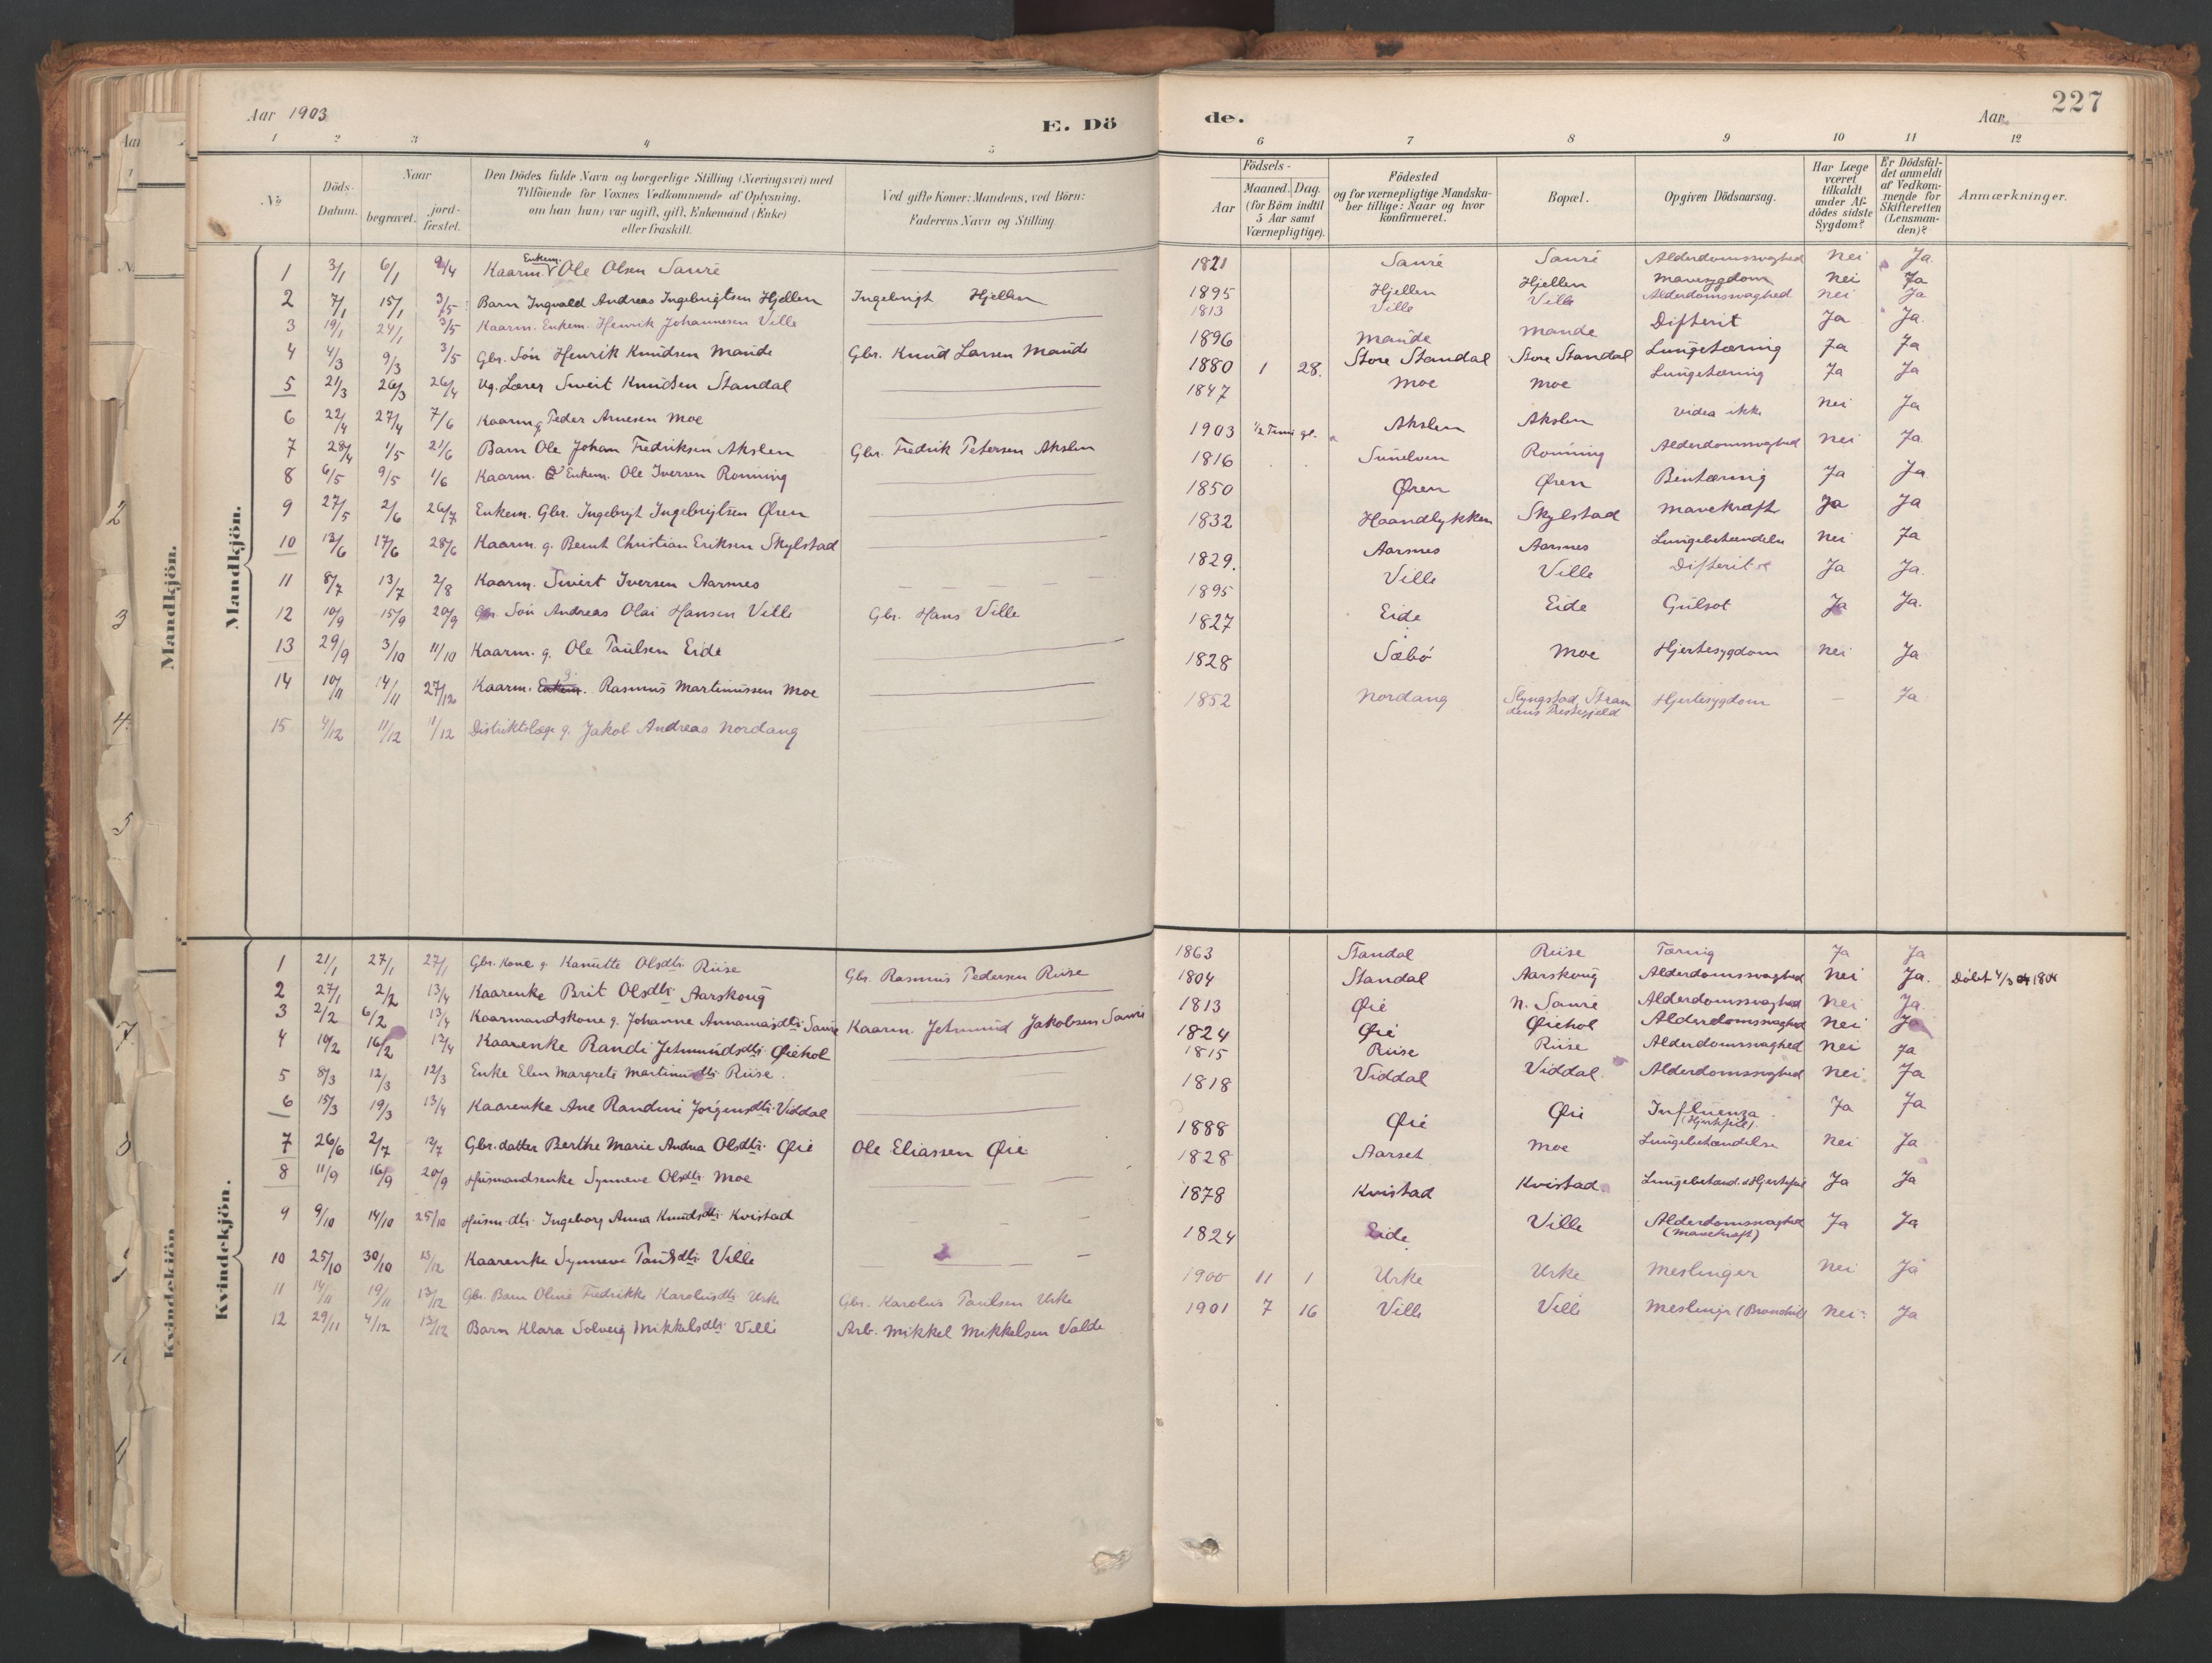 Aar 1903 E. Dö
de. Aar 227
1 2 3 4 5
6 7 8 9 10 11 12
No
Döds-Datum.
Naar
begravet.
jord-fæstet.
Den Dödes fulde Navn og borgerlige Stilling (Næringsvei) med
Tilföiende for Voxnes Vedkommende af Oplysning,
om han (hun) var ugift, gift, Enkemand (Enke)
eller fraskilt.
Ved gifte Koner: Mandens, ved Börn:
Faderens Navn og Stilling
Födsels-
Aar
Maaned. Dag.
(for Börn indtil
5 Aar samt
Værnepligtige).
Födested
og for værnepligtige Mandska-
ber tillige: Naar og hvor
konfirmeret.
Bopæl.
Opgiven Dödsaarsag.
Har Læge
været
tilkaldt
under Af-
dödes sidste
Sygdom?
Er Dödsfal-
det anmeldt
af Vedkom-
mende for
Skifteretten
(Lensman-
den)?
Anmærkninger.
Mandkjön.
1 3/1 6/1 2/4 Kaarm. Enkem. Ole Olsen Saure 1821 Saure Saure Alderdomssvaghed Nei Ja
2 7/1 15/1 3/5 Barn Ingvald Andreas Ingebrigtsen Hjellen Ingebrigt Hjellen 1895 Hjellen Hjellen Mavesygdom Nei Ja
3 19/1 24/1 3/5 Kaarm. Enkem. Henrik Johannesen Ville 1813 Ville Ville Alderdomssvaghed Nei Ja
4 4/3 9/3 3/5 Gbr. Sön Henrik Knudsen Maude Gbr. Knud Larsen Maude 1896 Maude Maude Difterit Ja Ja
5 21/3 26/3 26/4 Ug. Lærer Sivert Knudsen Standal 1880 1 28. Store Standal Store Standal Lungetæring Ja Ja
6 22/4 27/4 7/6 Kaarm. g. Peder Arnesen Moe 1847 Moe Moe Lungetæring Ja Ja
7 28/4 1/5 21/6 Barn Ole Johan Fredriksen Akslen Gbr. Fredrik Petersen Akslen 1903 1/2 Time gl. Akslen Akslen vides ikke Nei Ja
8 6/5 9/5 1/6 Kaarm. Enkem. Ole Iversen Rønning 1816 Sunelven Rønning Alderdomssvaghed Nei Ja
9 27/5 2/6 26/7 Enkem. Gbr. Ingebrigt Ingebrigtsen Øren 1850 Øren Øren Bentæring Ja Ja
10 13/6 17/6 28/6 Kaarm. g. Bernt Christian Eriksen Skylstad 1832 Haandlykken Skylstad Mavekræft Ja Ja
11 8/7 13/7 2/8 Kaarm. Sivert Iversen Aarsnes 1829. Aarsnes Aarsnes Lungebetændelse Nei Ja
12 10/9 15/9 20/9 Gbr. Sön Andreas Olai Hansen Ville Gbr. Hans Ville 1895 Ville Ville Difterit Ja Ja.
13 29/9 3/10 11/10 Kaarm. g. Ole Paulsen Eide 1827 Eide Eide Gulsot Ja Ja.
14 10/11 14/11 27/12 Kaarm. g. Rasmus Martinussen Moe 1828 Sæbø Moe Hjertesygdom Nei Ja
15 4/12 11/12 11/12 Distriktslæge g. Jakob Andreas Nordang 1852 Nordang Slyngstad, Strandens Præstegjeld Hjertesygdom — Ja
Kvindekjön.
1 21/1 27/1 27/1 Gbr. Kone g. Kanutte Olsdtr. Riise Gbr. Rasmus Pedersen Riise 1863 Standal Riise Tæring Ja Ja
2 27/1 2/2 13/4 Kaarenke Brit Olsdtr. Aarskoug 1804 Standal Aarskoug Alderdomssvaghed Nei Ja. Døbt 4/3 1804
3 2/2 6/2 13/4 Kaarmandskone g. Johanne Annamasdtr. Saure Kaarm. Jetmund Jakobsen Saure 1813 Øie N. Saure Alderdomssvaghed Nei Ja
4 10/2 16/2 12/4 Kaarenke Randi Jetmundsdtr. Øiehol 1824 Øie Øiehol Alderdomssvaghed Nei Ja
5 8/3 12/3 12/3 Enke Elen Margrete Martinusdtr. Riise. 1815 Riise Riise Alderdomssvaghed Nei Ja
6 15/3 19/3 13/4 Kaarenke Ane Randine Jørgensdtr. Viddal 1818 Viddal Viddal Alderdomssvaghed Nei. Ja
7 26/6 2/7 12/7 Gbr. datter Berthe Marie Andrea Olsdtr. Øie Ole Eliassen Øie 1888 Øie Øie Influenza (Hjertefeil). Ja Ja
8 11/9 16/9 20/9 Husmandsenke Synneve Olsdtr. Moe 1828 Aarset Moe Lungebetændelse Nei Ja
9 9/10 14/10 25/10 Husm. dtr. Ingeborg Anna Knudsdtr. Kvistad 1878 Kvistad Kvistad Lungebetænd. Hjertefeil Ja Ja
10 25/10 30/10 13/12 Kaarenke Synneve Paulsdtr. Ville 1824 Eide Ville Alderdomssvaghed (Mavekræft) Ja Ja
11 14/11 19/11 13/12 Gbr. Barn Oline Fredrikke Karolusdtr. Urke Gbr. Karolus Paulsen Urke 1900 11 1 Urke Urke Meslinger Nei Ja
12 29/11 4/12 13/12 Barn Klara Solveig Mikkelsdtr. Ville Arb. Mikkel Mikkelsen Valde 1901 7 16 Ville Ville Meslinger Nei Ja